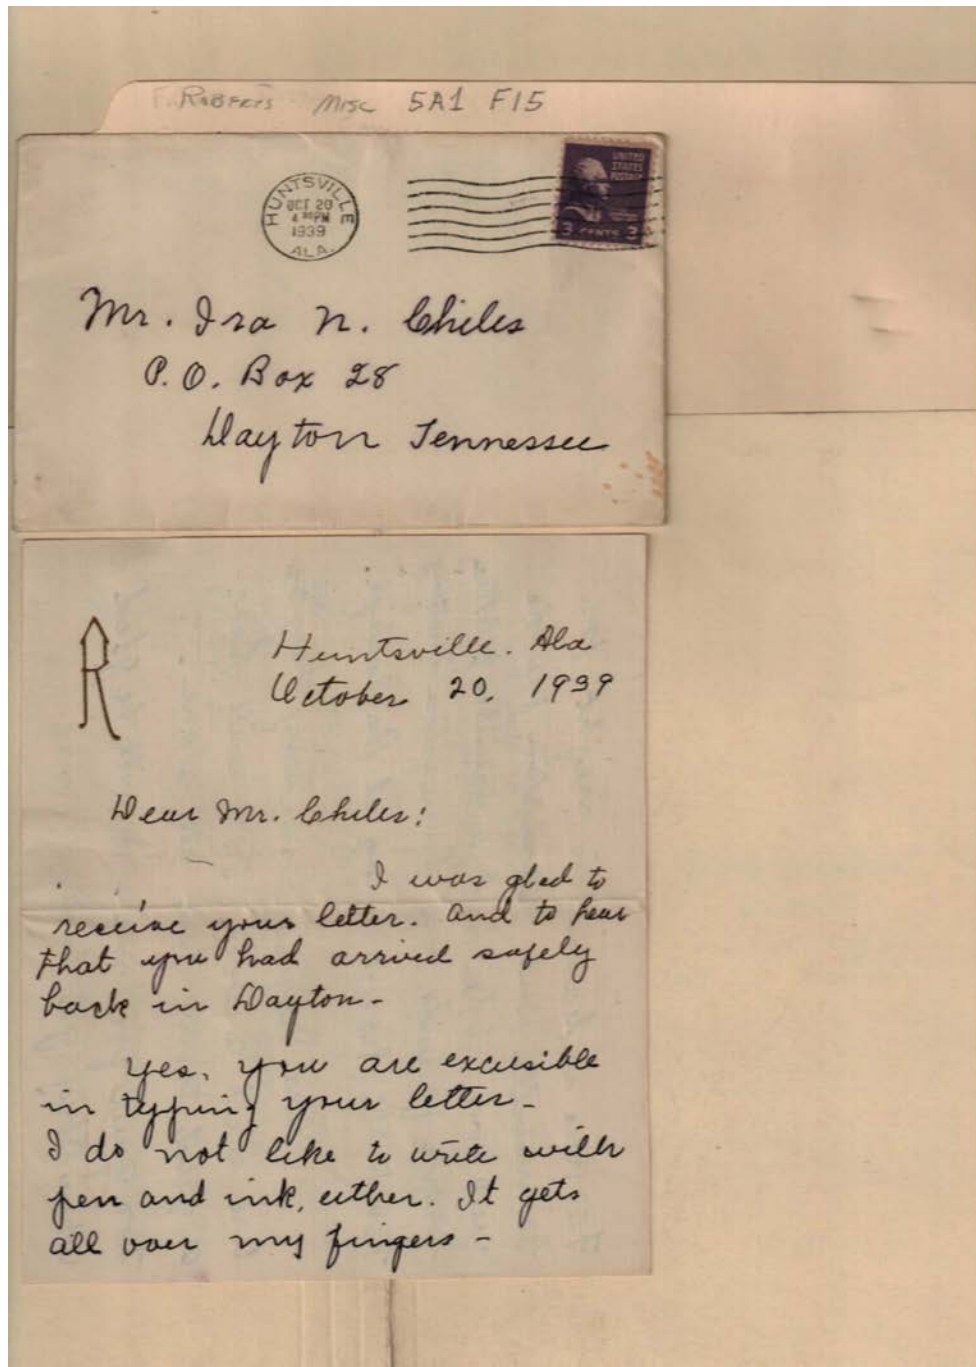 F. Roberts Misc 5A1 F15
HUNTSVILLE
OCT 20
4 30 PM
1939
ALA.
UNITED
STATES
POSTAGE
3 CENTS 3
Mr. Ira N. Chiles
P.O. Box 28
Dayton Tennessee
R
Huntsville. Ala
October 20, 1939
Dear Mr. Chiles:
I was glad to
receive your letter. And to hear
that you had arrived safely
back in Dayton-
Yes, you are excusible
in typing your letter-
I do not like to write with
pen and ink, either. It gets
all over my fingers-